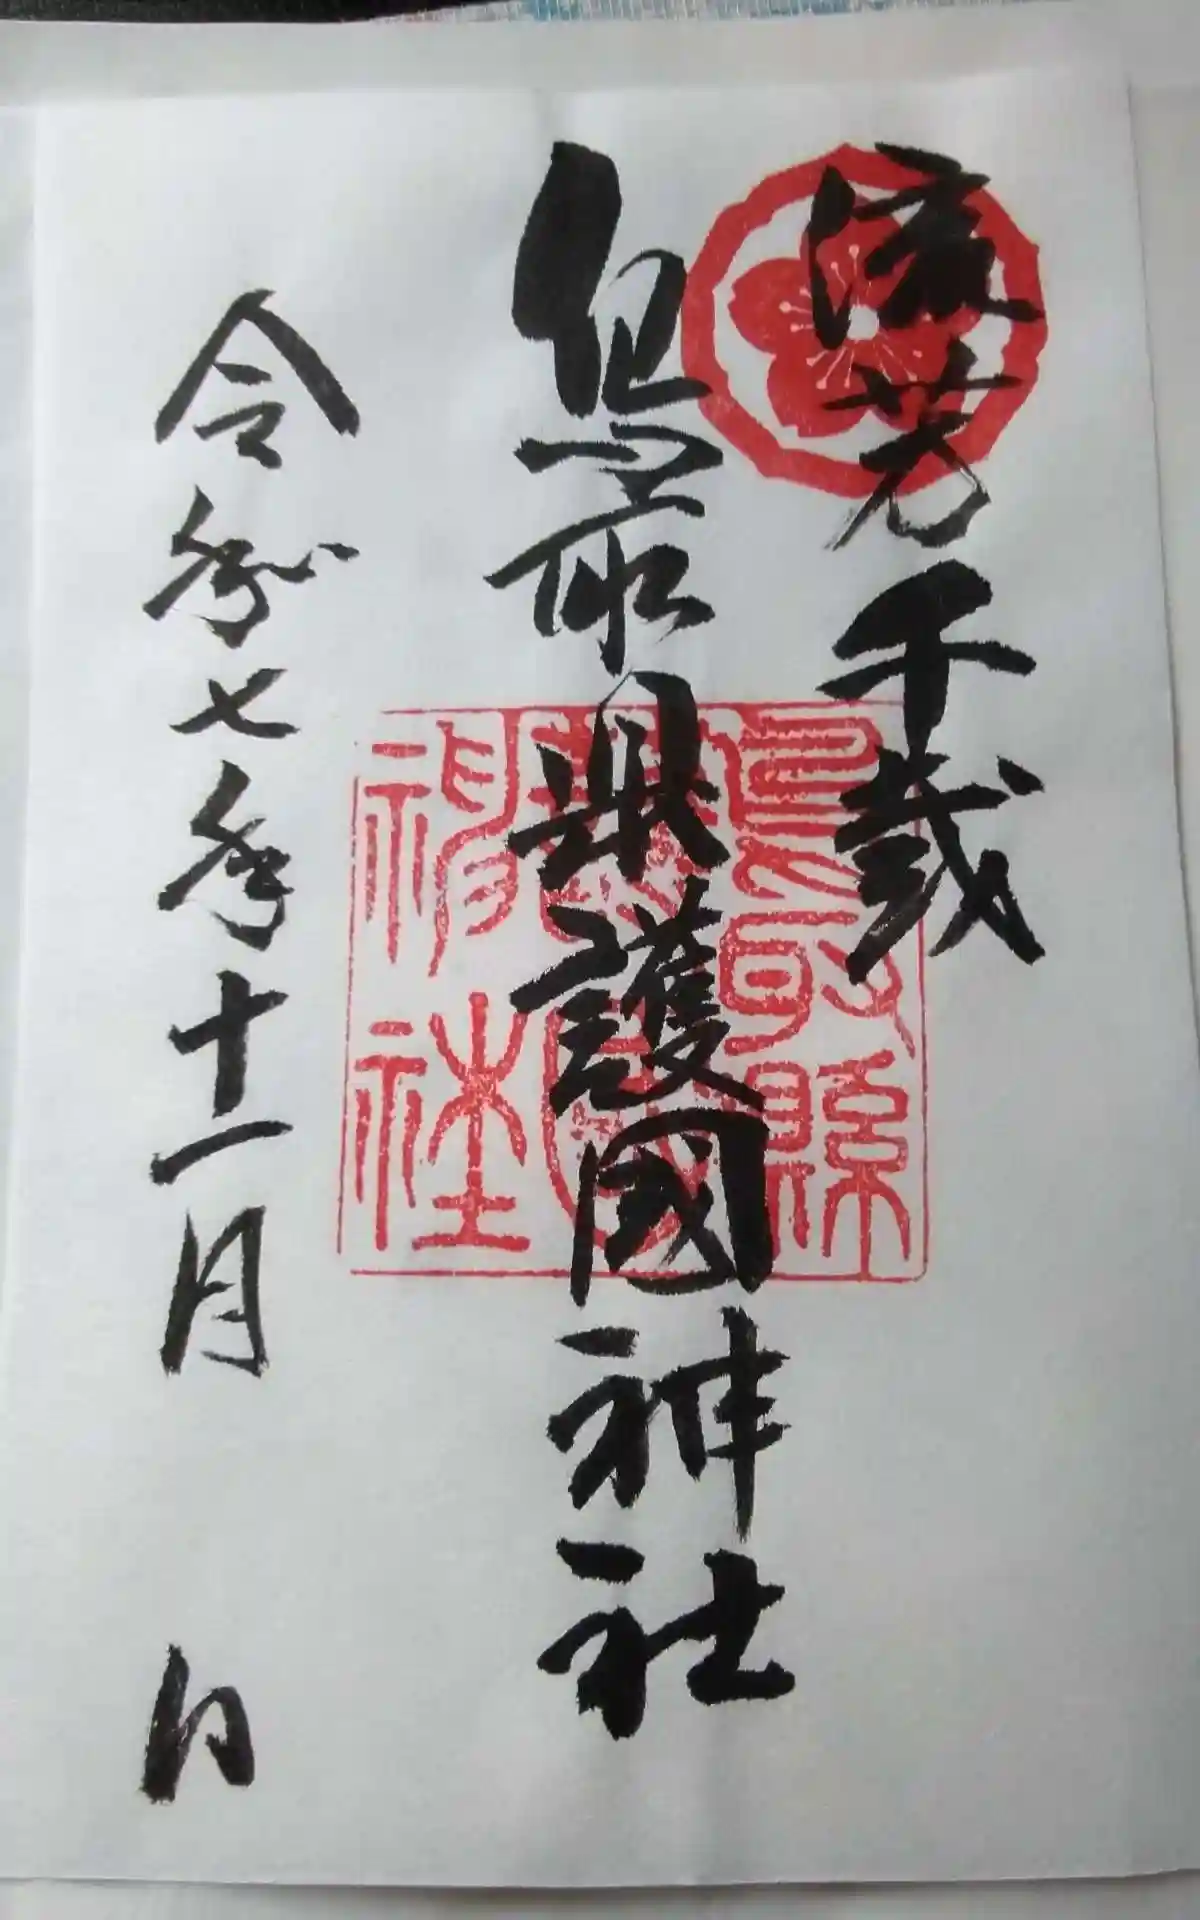 流芳千載
鳥取県護國神社
令和七年十一月　日
鳥取縣
護國
神社